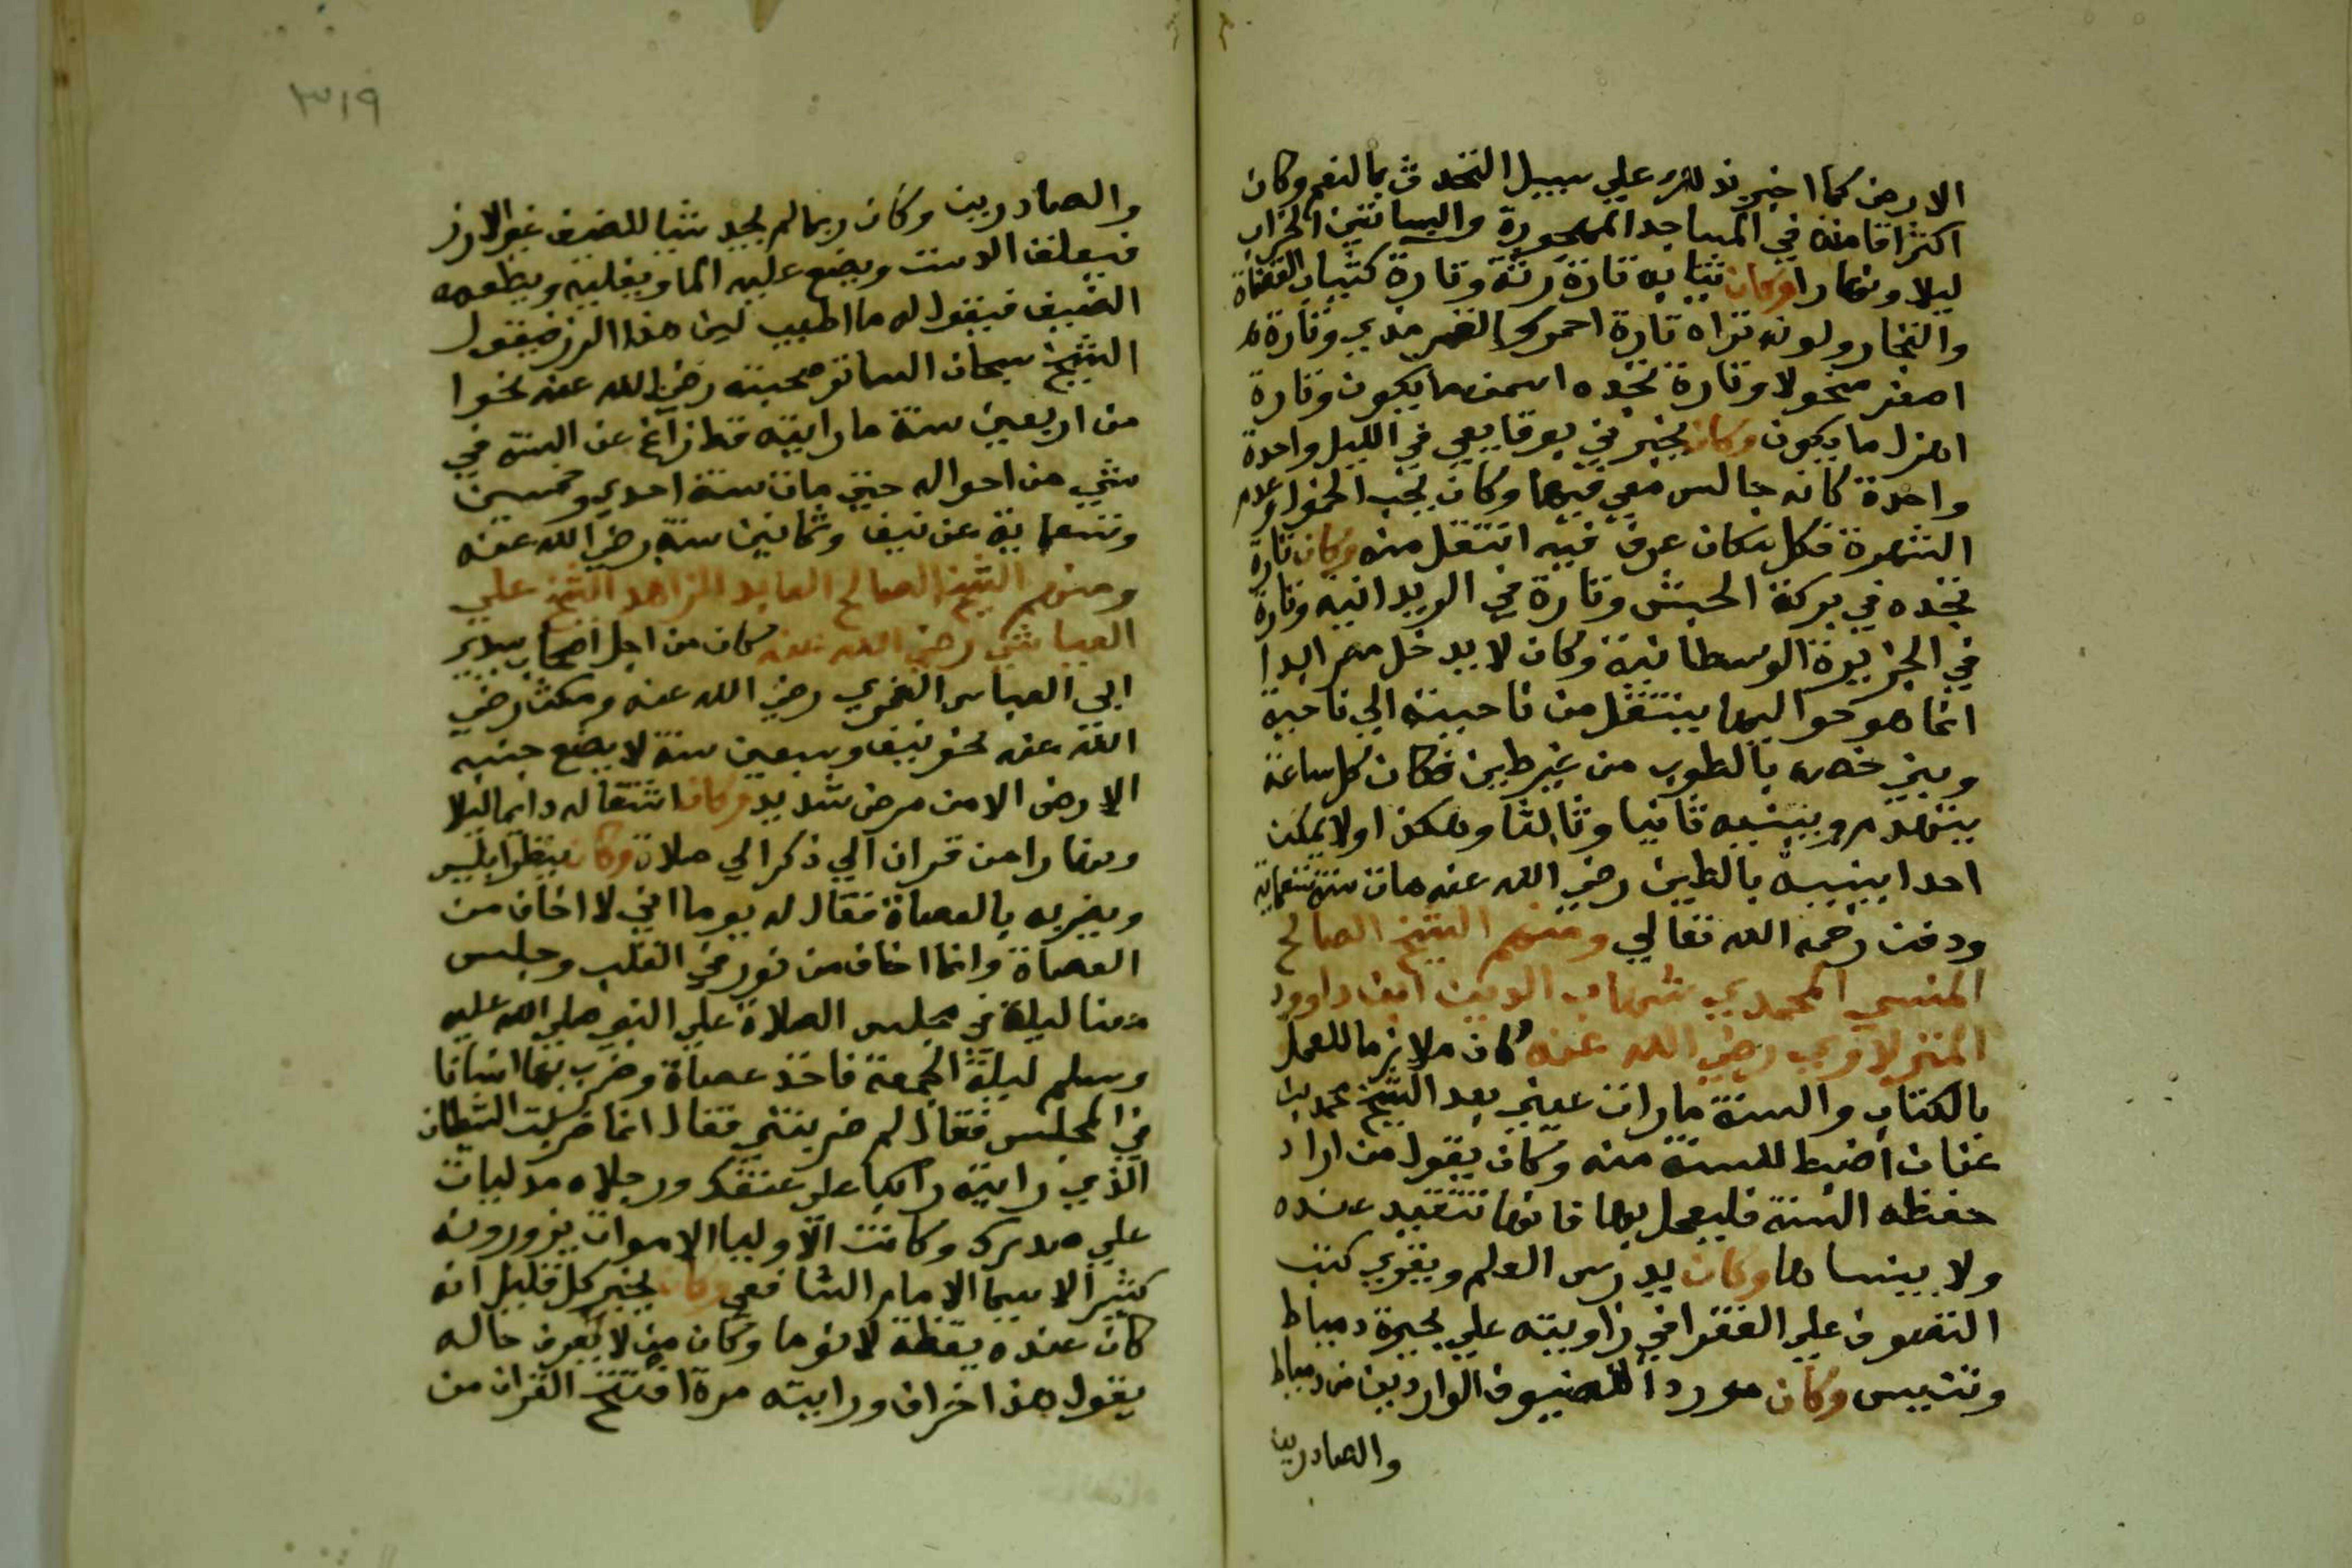 الارض كما اخبرني بذلك علي سبيل التحدث بالنعم وكان
اكثر اقامته في المساجد المهجورة والبساتين الخراب
ليلا ونهارا وكان ثيابه تارة رثة وتارة كثياب القضاة
والتجار ولونه تراه تارة احمر كالضر مدي وتارة
اصفر منحولا وتارة تجده اسمن ما يكون وتارة
اهزل ما يكون وكان يخبرني بوقايعي في الليل واحدة
واحدة كانه جالس معي فيها وكان يحب الخمول وعدم
الشهرة فكل مكان عرف فيه انتقل منه وكان تارة
تجده في بركة الحبش وتارة في الريدانيه وتارة
في الجزيرة الوسطانية وكان لا يدخل مصر ابدا
انما هو حواليها ينتقل من ناحيته الي ناحية
وبني خصه بالطوب من غير طين فكان كل ساعة
يتهدم ويبنيه ثانيا وثالثا وهكذا ولا يمكن
احدا يبنيه بالطين رضي الله عنه مات سنة تسعماية
ودفن رحمه الله تعالي ومنهم الشيخ الصالح
المنسي المحمدي شهاب الدين ابن داوود
المنزلاوي رضي الله عنه كان ملازما للعمل
بالكتاب والسنة ما رات عيني بعد الشيخ محمد بن
عنان اضبط للسنة منه وكان يقول من اراد
حفظه السنة فليعمل بها فانها تتقيد عنده
ولا ينساها وكان يدرس العلم ويقري كتب
التصوف علي الفقرا في زاويته علي بحيرة دمياط
وتنيس وكان موردا للضيوف الواردين من دمياط
والصادرين
٣١٩
والصادرين وكان ربما لم يجد شيا للضيف غير الارز
فيعلق الدست ويضع عليه الما ويغليه ويطعمه
الضيف فيقول له ما اطيب لبن هذا الرز فيقول
الشيخ سبحان الساتر صحبته رضي الله عنه نحوا
من اربعين سنة ما رايته قط زاغ عن السنة في
شي من احواله حتي مات سنة احدي وخمسين
وتسعماية عن نيف وثمانين سنة رضي الله عنه
ومنهم الشيخ الصالح العابد الزاهد الشيخ علي
العياشي رضي الله عنه كان من اجل اصحاب سيدي
ابي العباس الغمري رضي الله عنه ومكث رضي
الله عنه نحو نيف وسبعين سنة لا يضع جنبه
الارض الا من مرض شديد وكان اشتغاله دايما ليلا
ونهارا من قران الي ذكر الي صلاة وكان ينظر ابليس
ويضربه بالعصاة فقال له يوما اني لا اخاف من
العصاة وانما اخاف من نور في القلب وجلس
عندنا ليلة في مجلس الصلاة علي النبي صلي الله عليه
وسلم ليلة الجمعة فاخذ عصاة وضرب بها انسانا
في المجلس فقال لم ضربتني فقال انما ضربت الشيطان
الذي رايته راكبا علي عنقك ورجلاه مدليات
علي صدرك وكانت الاوليا الاموات يزورونه
كثيرا لا سيما الامام الشافعي وكان يخبر كل قليل انه
كان عنده يقظة لا نوما وكان من لا يعرف حاله
يقول هذا خراف ورايته مرة افتتح القران من